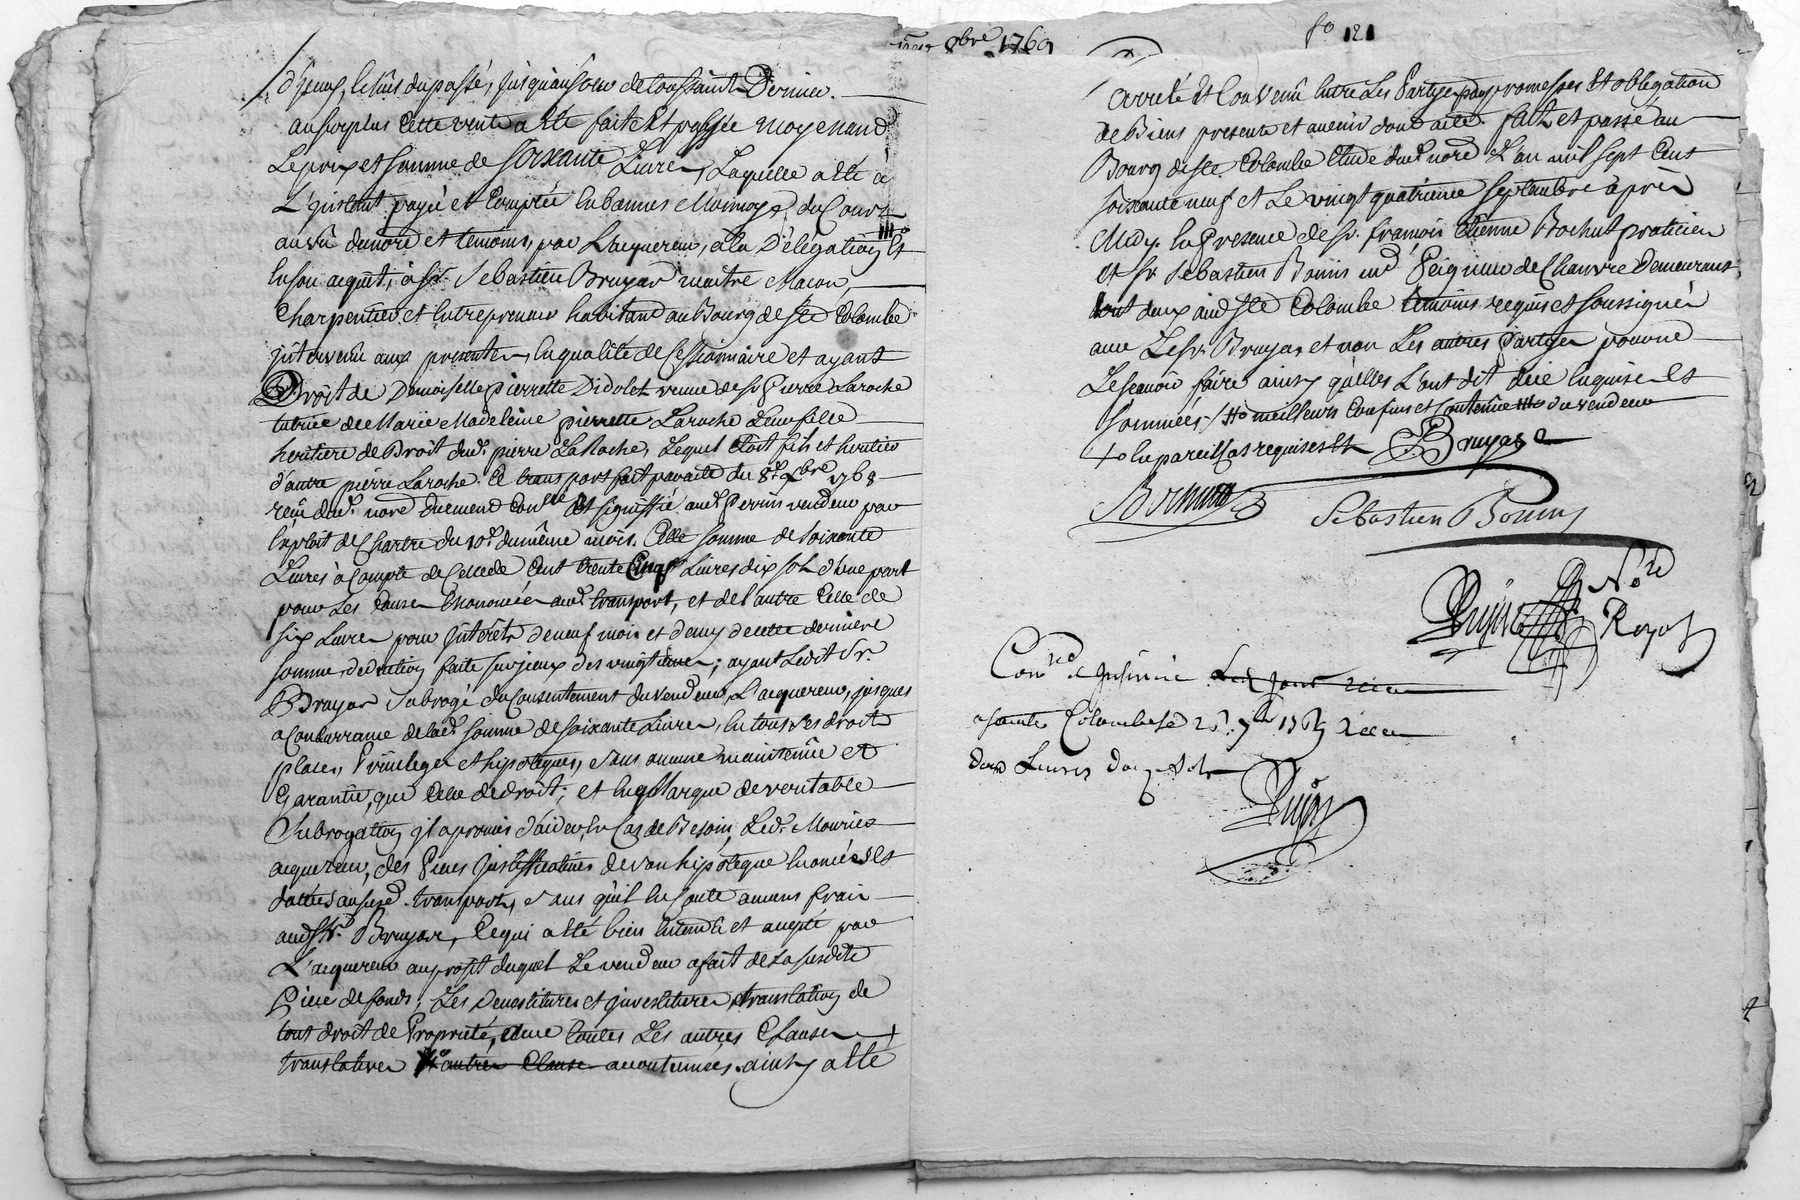 d'jceux, le tûs du passé, jusqu'au jour de toussaint Dernier.
au surplus Cette vente a Eté faite Et passée moyenand
Le prix et somme de soixante Livres, Laquelle a Eté à
L'jnstant payée et Comptée En bonnes Monnoyes du Cours
au vû du nore et temoins, par L'acquereur, à la Délégation Et
En son acquit, à sr. Sebastien Bruyas maitre Macon,
Charpentier et Entrepreneur habitand au Bourg de Ste Colombe
jntervenû aux presentes, En qualité de Cessionnaire et ayant
Droit de Demoiselle pierrette Didolet veuve de sr Pierre Laroche
tutrice de Marie Madeleine pierrette Laroche Leur fille
heritiere de Droit dud. pierre La Roche, Lequel Etoit fils et heritier
d'autre pierre Laroche. Le transport fait par acte du 8e xbre 1768
reçu dud. nore duement Conlé Et signiffié aud. Perrin vendeur par
Exploit de Chartre du 10e du même mois. Celle somme de soixante
Livres à Compte de Celle de Cent trente Cinq Livres dix sols d'une part
pour Les Causes Enoncées aud. transport, et de l'autre Celle de
six Livres pour jnterêts de neuf mois et demy de cette derniere
somme, deduction faite sur jceux des vingtiemes; ayant Ledit Sr.
Bruyas subrogé du Consentement du vendeur, L'acquereur, jusques
a Concurrance de lad. somme de soixante Livres, En tous ses droits
places, Privileges et hipoteques, sans aucune maintenüe et
Garantie, que Celle de droit; et En Marque de veritable
Subrogation jl a promis d'aider En Cas de Besoin, Led. Mouriés
acquereur, des Pieces Justifficatives de son hipoteque Enoncées Et
dattées au susd. transport, sans qu'il En Coute aucuns frais
aud Sr. Bruyas, Ce qui a Eté bien Entendu et accepté par
L'acquereur au profit duquel Le vendeur a fait de La susdite
Piece de fonds, Les Devestitures et jnvestitures translation de
tout droit de Propriété, avec toutes Les autres Clauses
translatives autres Clauses accoutumées. ainsy a Eté
8bre 1769
fo 121
Arreté Et Convenû Entre Les Partyes par promesses Et obligation
de Biens presents et avenir dont acte. fait et passé au
Bourg de Ste. Colombe Etude dud. nore L'an mil sept Cent
soixante neuf et Le vingt quatrieme septembre après
Midy. En Presence de sr. françois Etienne Bochut praticien
et sr Sebastien Bonin md Peigneur de Chanvre Demeurants
tout deux aud Ste Colombe temoins requis et soussignés
avec Le sr. Bruyas et non Les autres partyes pour ne
Le scavoir faire ainsy qu'elles L'ont dit de ce Enquises Et
sommées meilleurs Confins et Contenüe du vendeur
+ En pareil Cas requises Et Bruyas
Sebastien Bonin
Nore
Royal
Conlé & Jnsinüé
a sainte Colombe le
deux Livres